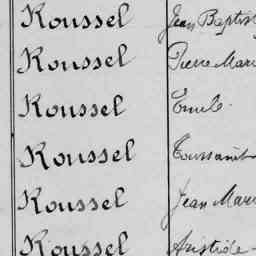 Roussel Jean Baptist
Roussel Pierre Mari
Roussel Emile.
Roussel Toussaint
Roussel Jean Mari
Roussel Aristide